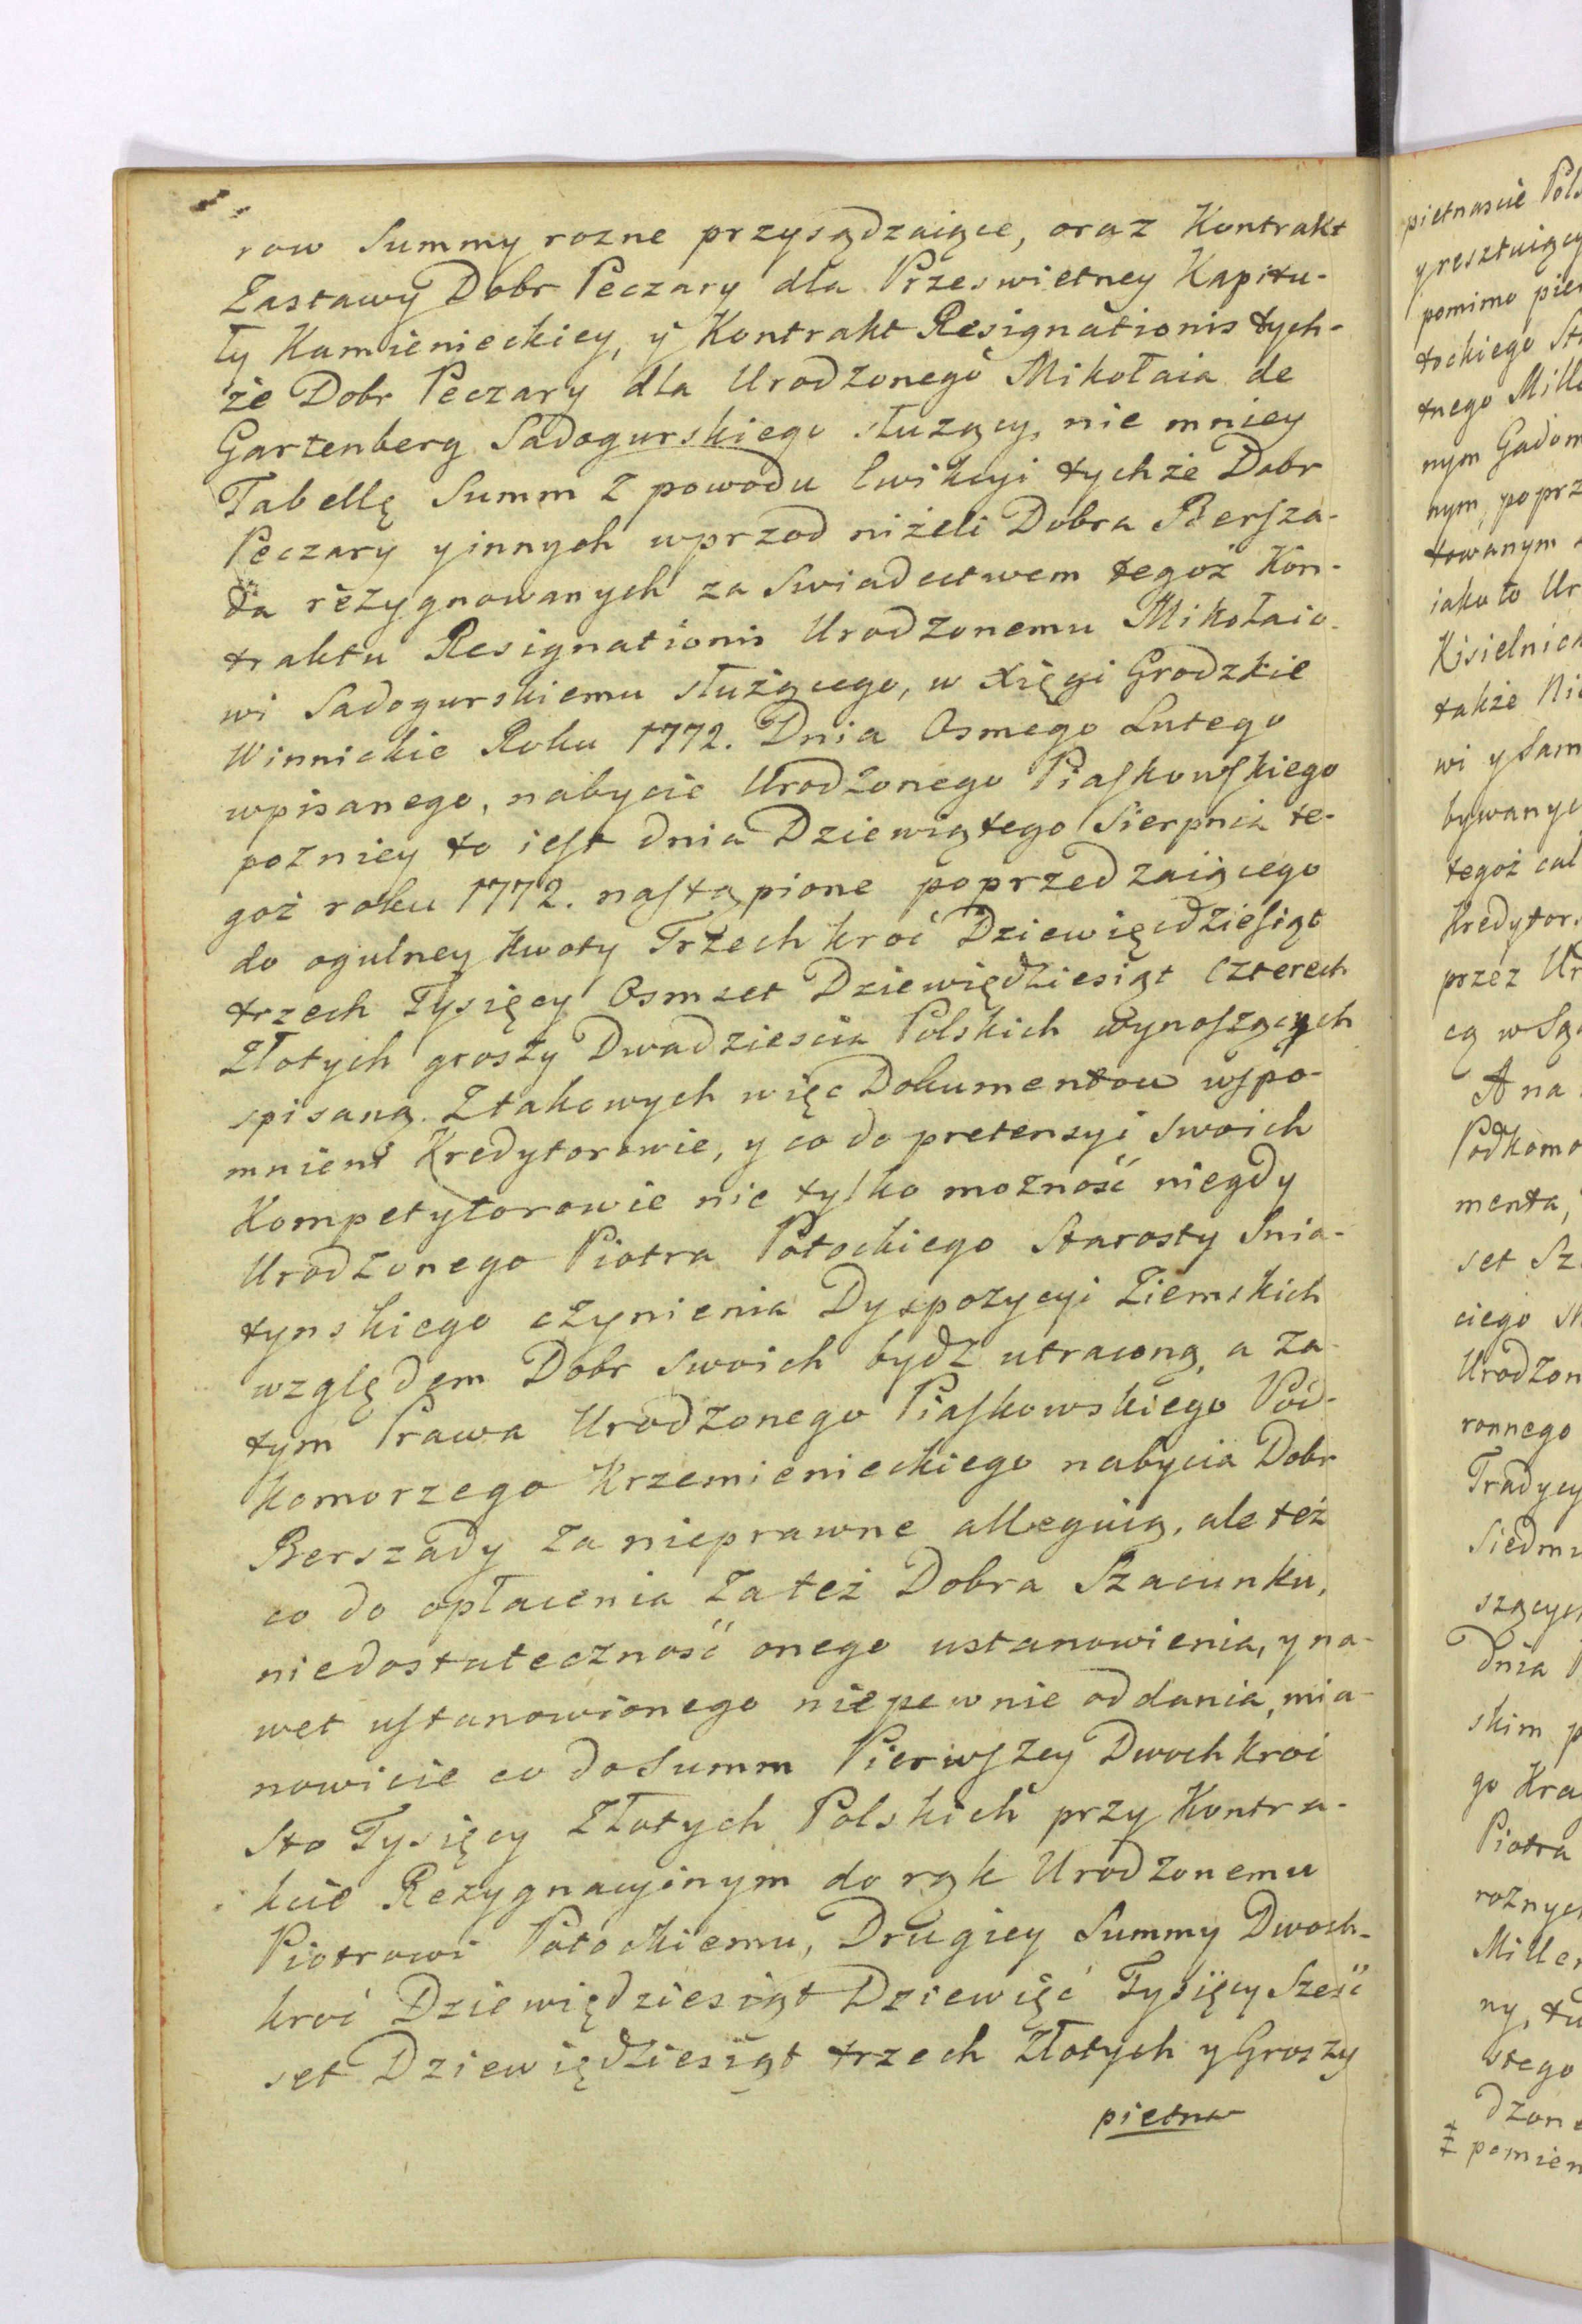 row Summy rozne przysądzaiące, oraz Kontrakt
Zastawy Dobr Peczary dla Przeswietney Kapitu-
ły Kamienieckiey, y Kontrakt Resignationis tych-
że Dobr Peczary dla Urodzonego Mikołaia de
Gartenberg Sadogurskiego służący, nie mniey
Tabellę Summ z powodu Ewikcyi tychże Dobr
Peczary y innych wprzod niżeli Dobra Bersza-
da rezygnowanych za Swiadectwem tegoż Kon-
traktu Resignationis Urodzonemu Mikołaio-
wi Sadogurskiemu służącego, w Xięgi Grodzkie
Winnickie Roku 1772. Dnia Osmego Lutego
wpisanego, nabycie Urodzonego Piaskowskiego
pozniey to iest dnia Dziewiątego Sierpnia te-
goż roku 1772. nastąpione poprzedzaiącego
do ogulney kwoty Trzechkroć Dziewięcdziesiąt
trzech Tysięcy Osmset Dziewiędziesiąt Czterech
Złotych groszy Dwadziescia Polskich wynoszących
spisaną. Z takowych więc Dokumentow wspo-
mnieni Kredytorowie, y co do pretensyi swoich
Kompetytorowie nie tylko możność niegdy
Urodzonego Piotra Potockiego Starosty Snia-
tynskiego czynienia Dyspozycyi Ziemskich
względem Dobr swoich bydz utraconą, a za-
tym Prawa Urodzonego Piaskowskiego Pod-
komorzego Krzemienieckiego nabycia Dobr
Berszady za nieprawne alleguią, ale też
co do opłacenia za też Dobra Szacunku,
niedostateczność onego ustanowienia, y na-
wet ustanowionego niepewnie oddania, mia-
nowicie co do Summ Pierwszey Dwochkroć
Sto Tysięcy Złotych Polskich przy Kontra-
kcie Rezygnacyinym do rąk Urodzonemu
Piotrowi Potockiemu, Drugiey Summy Dwoch-
kroć Dziewiędziesiąt Dziewięć Tysięcy Sześć
set Dziewiędziesiąt trzech Złotych y Groszy
pietna
pietnascie
y resztuiący
pomimo
tockiego
tnego
nym
nym, po
towanym
iako to
także
wi y
tegoż
przez
A na
menta,
set
ciego
ronnego
dnia
skim
go
Piotra
rożnych
ny,
stego